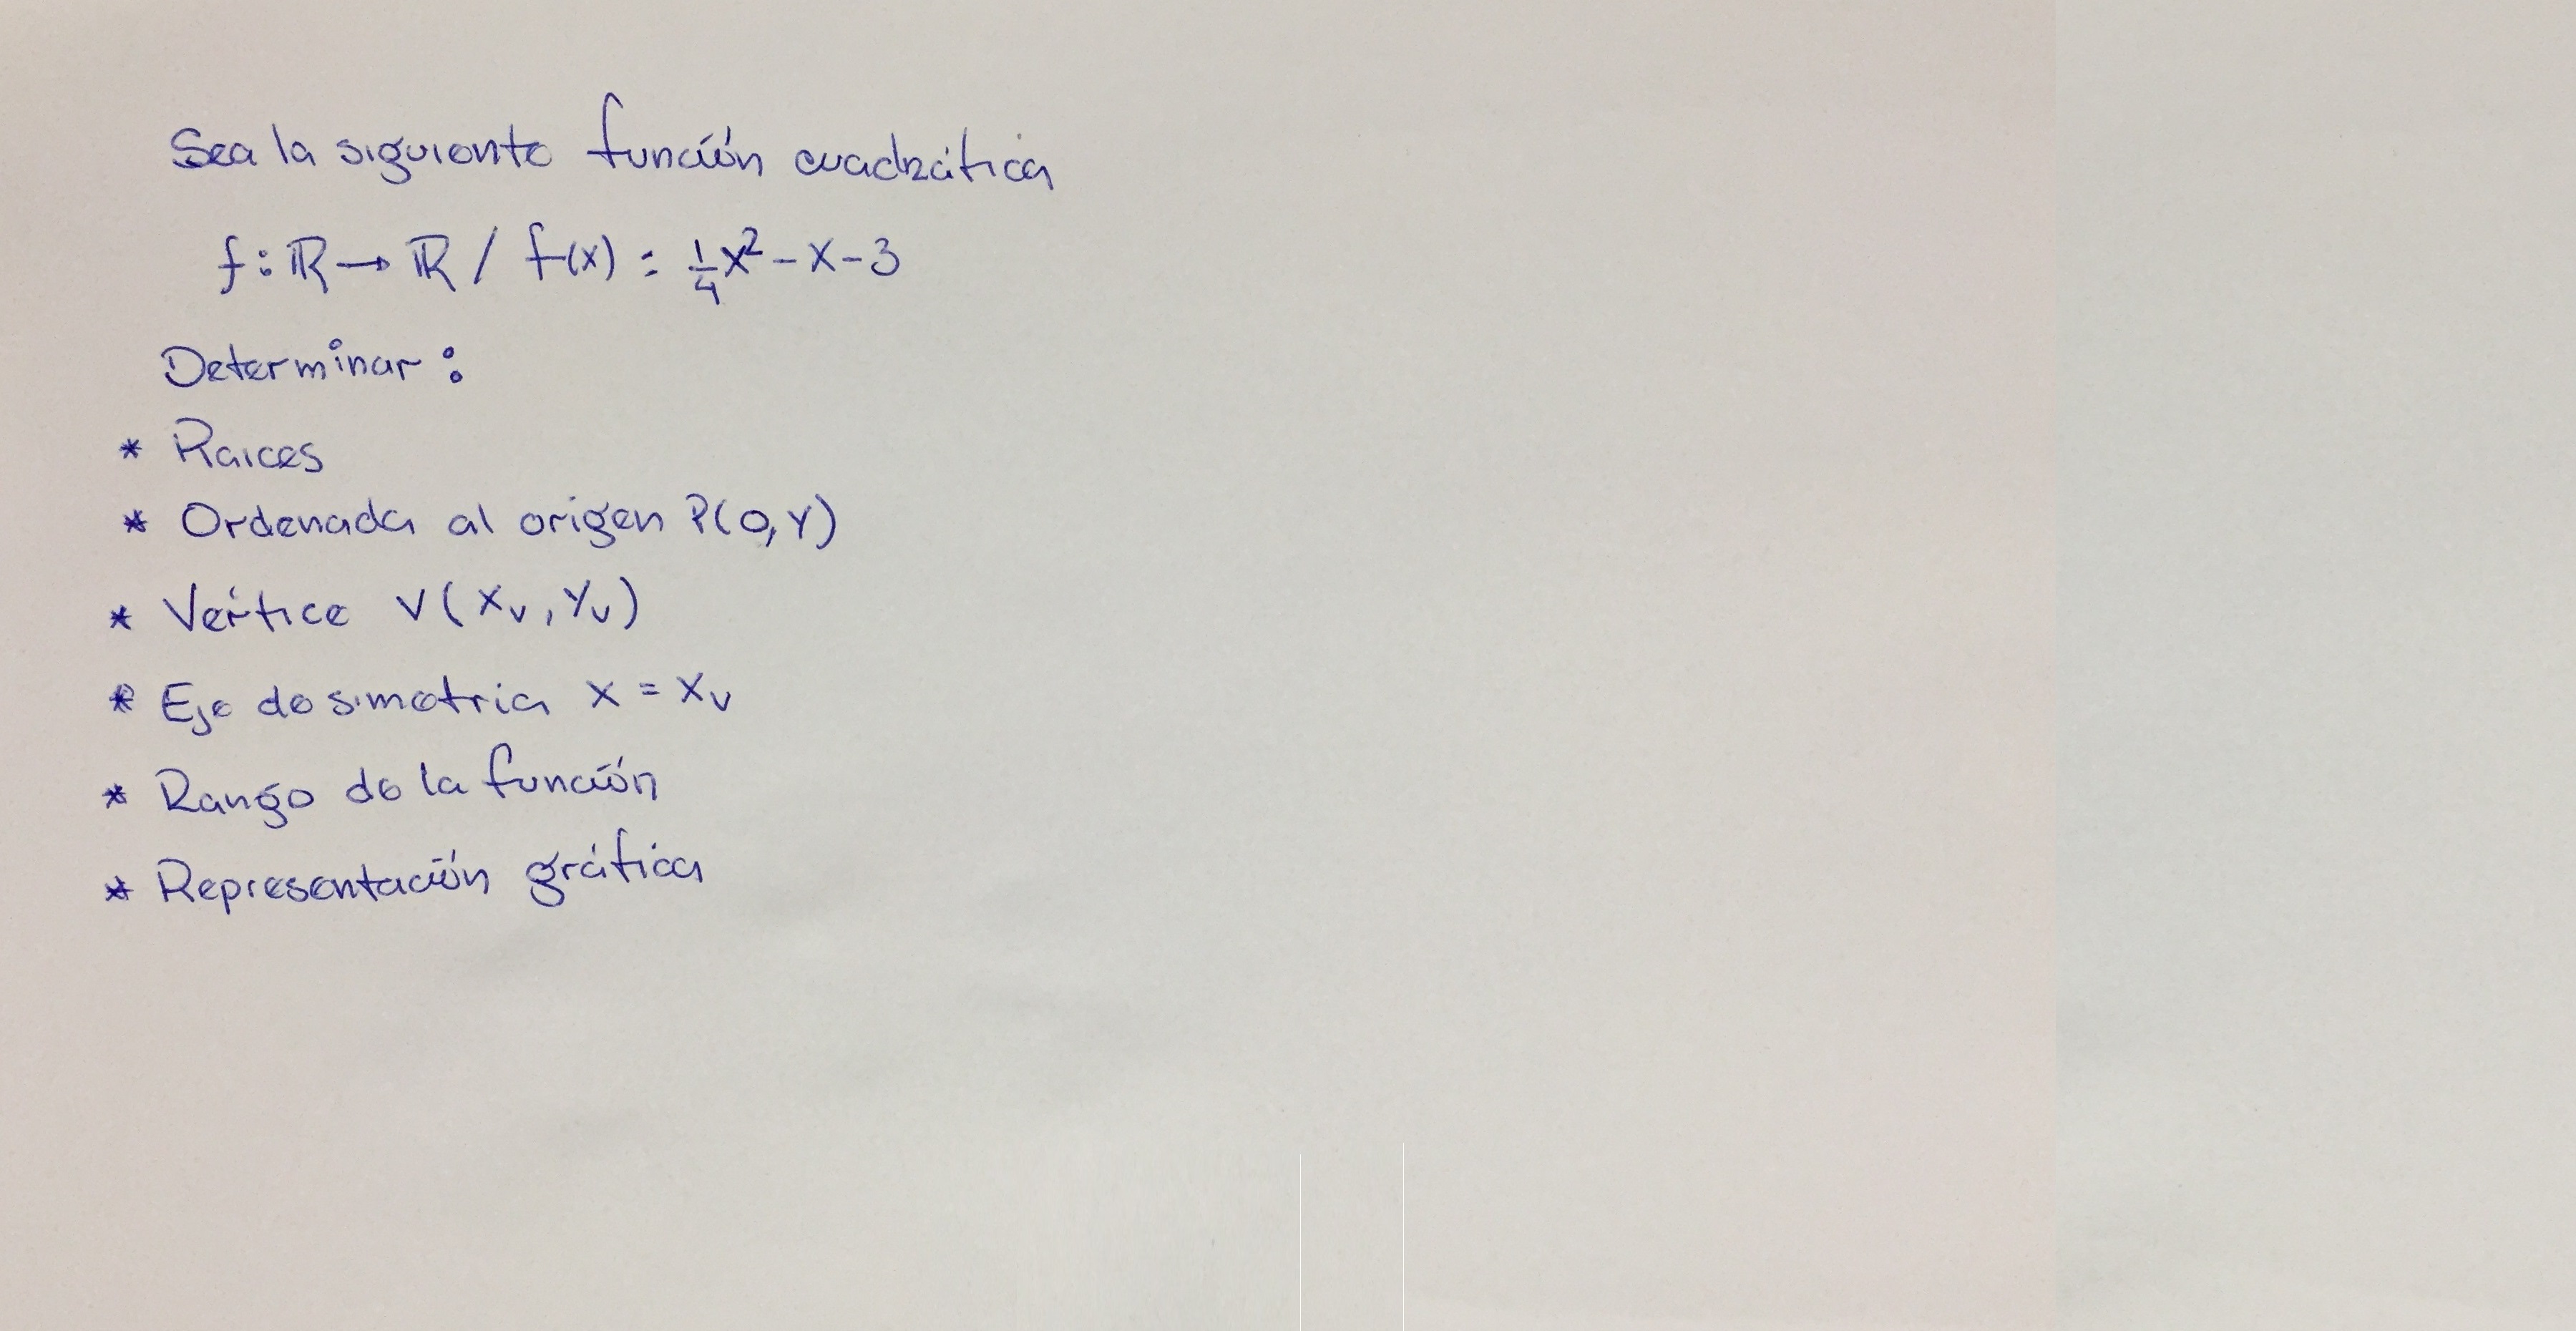 Sea la siguiente función cuadrática
f: ℝ → ℝ / f(x) = 1/4 x² - x - 3
Determinar:
* Raices
* Ordenada al origen P(0,Y)
* Vértice V(Xv, Yv)
* Eje de simetria X = Xv
* Rango de la función
* Representación gráfica